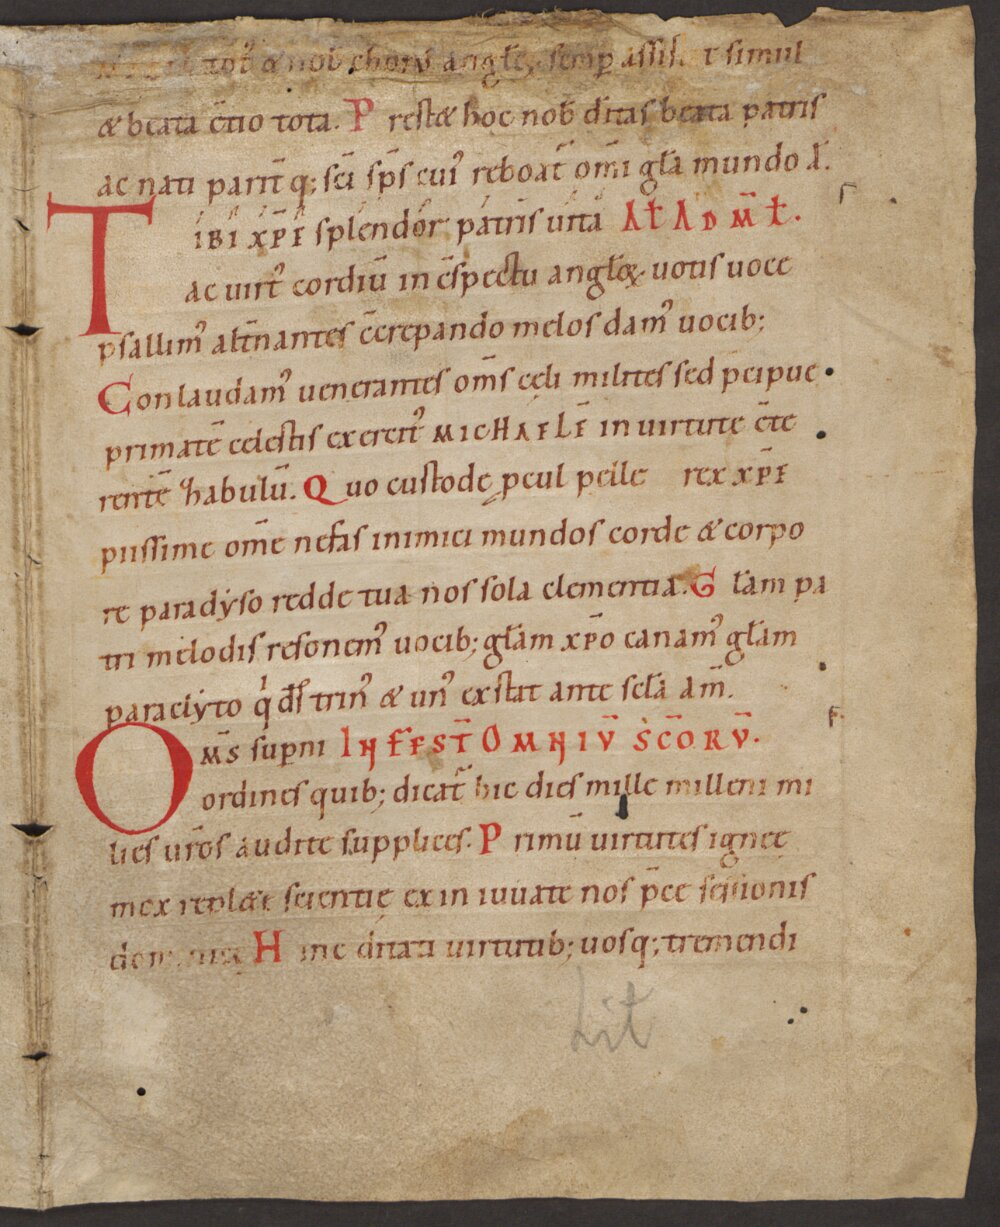 tot᷒ & nob̄ chorꝰ angłoꝝ semp̲ assist t simul
& beata c̄tio tota. P rest& hoc nob̄ ditas beata patris
ac nati parit̄ q; sc̄i sp̄s cuiꝰ reboat̄ om̄i gła mundo A̅.
TIBI XP̄E splendor patris uirtꝰ AŁ AD M̄Ł.
ac uirtꝰ cordiū in c̄spectu angłoꝝ uotis uoce
psallimꝰ alt̄nantes c̄crepando melos damꝰ uocib;
Conlaudamꝰ uenerantes om̄s cęli milites sed p̄cipue
primatē cęlestis exercitꝰ MICHAELĒ in uirtute c̄te
rentē zhabulū. Quo custode p̲cul pelle rex xp̄e
piissime om̄e nefas inimici mundos corde & corpo
re paradẏso redde tua nos sola clementia. G łam pa
tri melodis resonemꝰ uocib; głam xp̄o canamꝰ głam
paraclẏto qͥ ds̄ trinꝰ & unꝰ exstat ante scła am̄.
OM̄S sup̲ni IN FEST̄ OMNIV̄ SC̄ORV̄.
ordines quib; dicat̄ hic dies mille milleni mi
lies ur̄os audite supplices. P rimū virtutes ignee
mox replete scientię exin iuuate nos p̄ce scissionis
H inc ditati uirtutib; uosq; tremendi
Lit